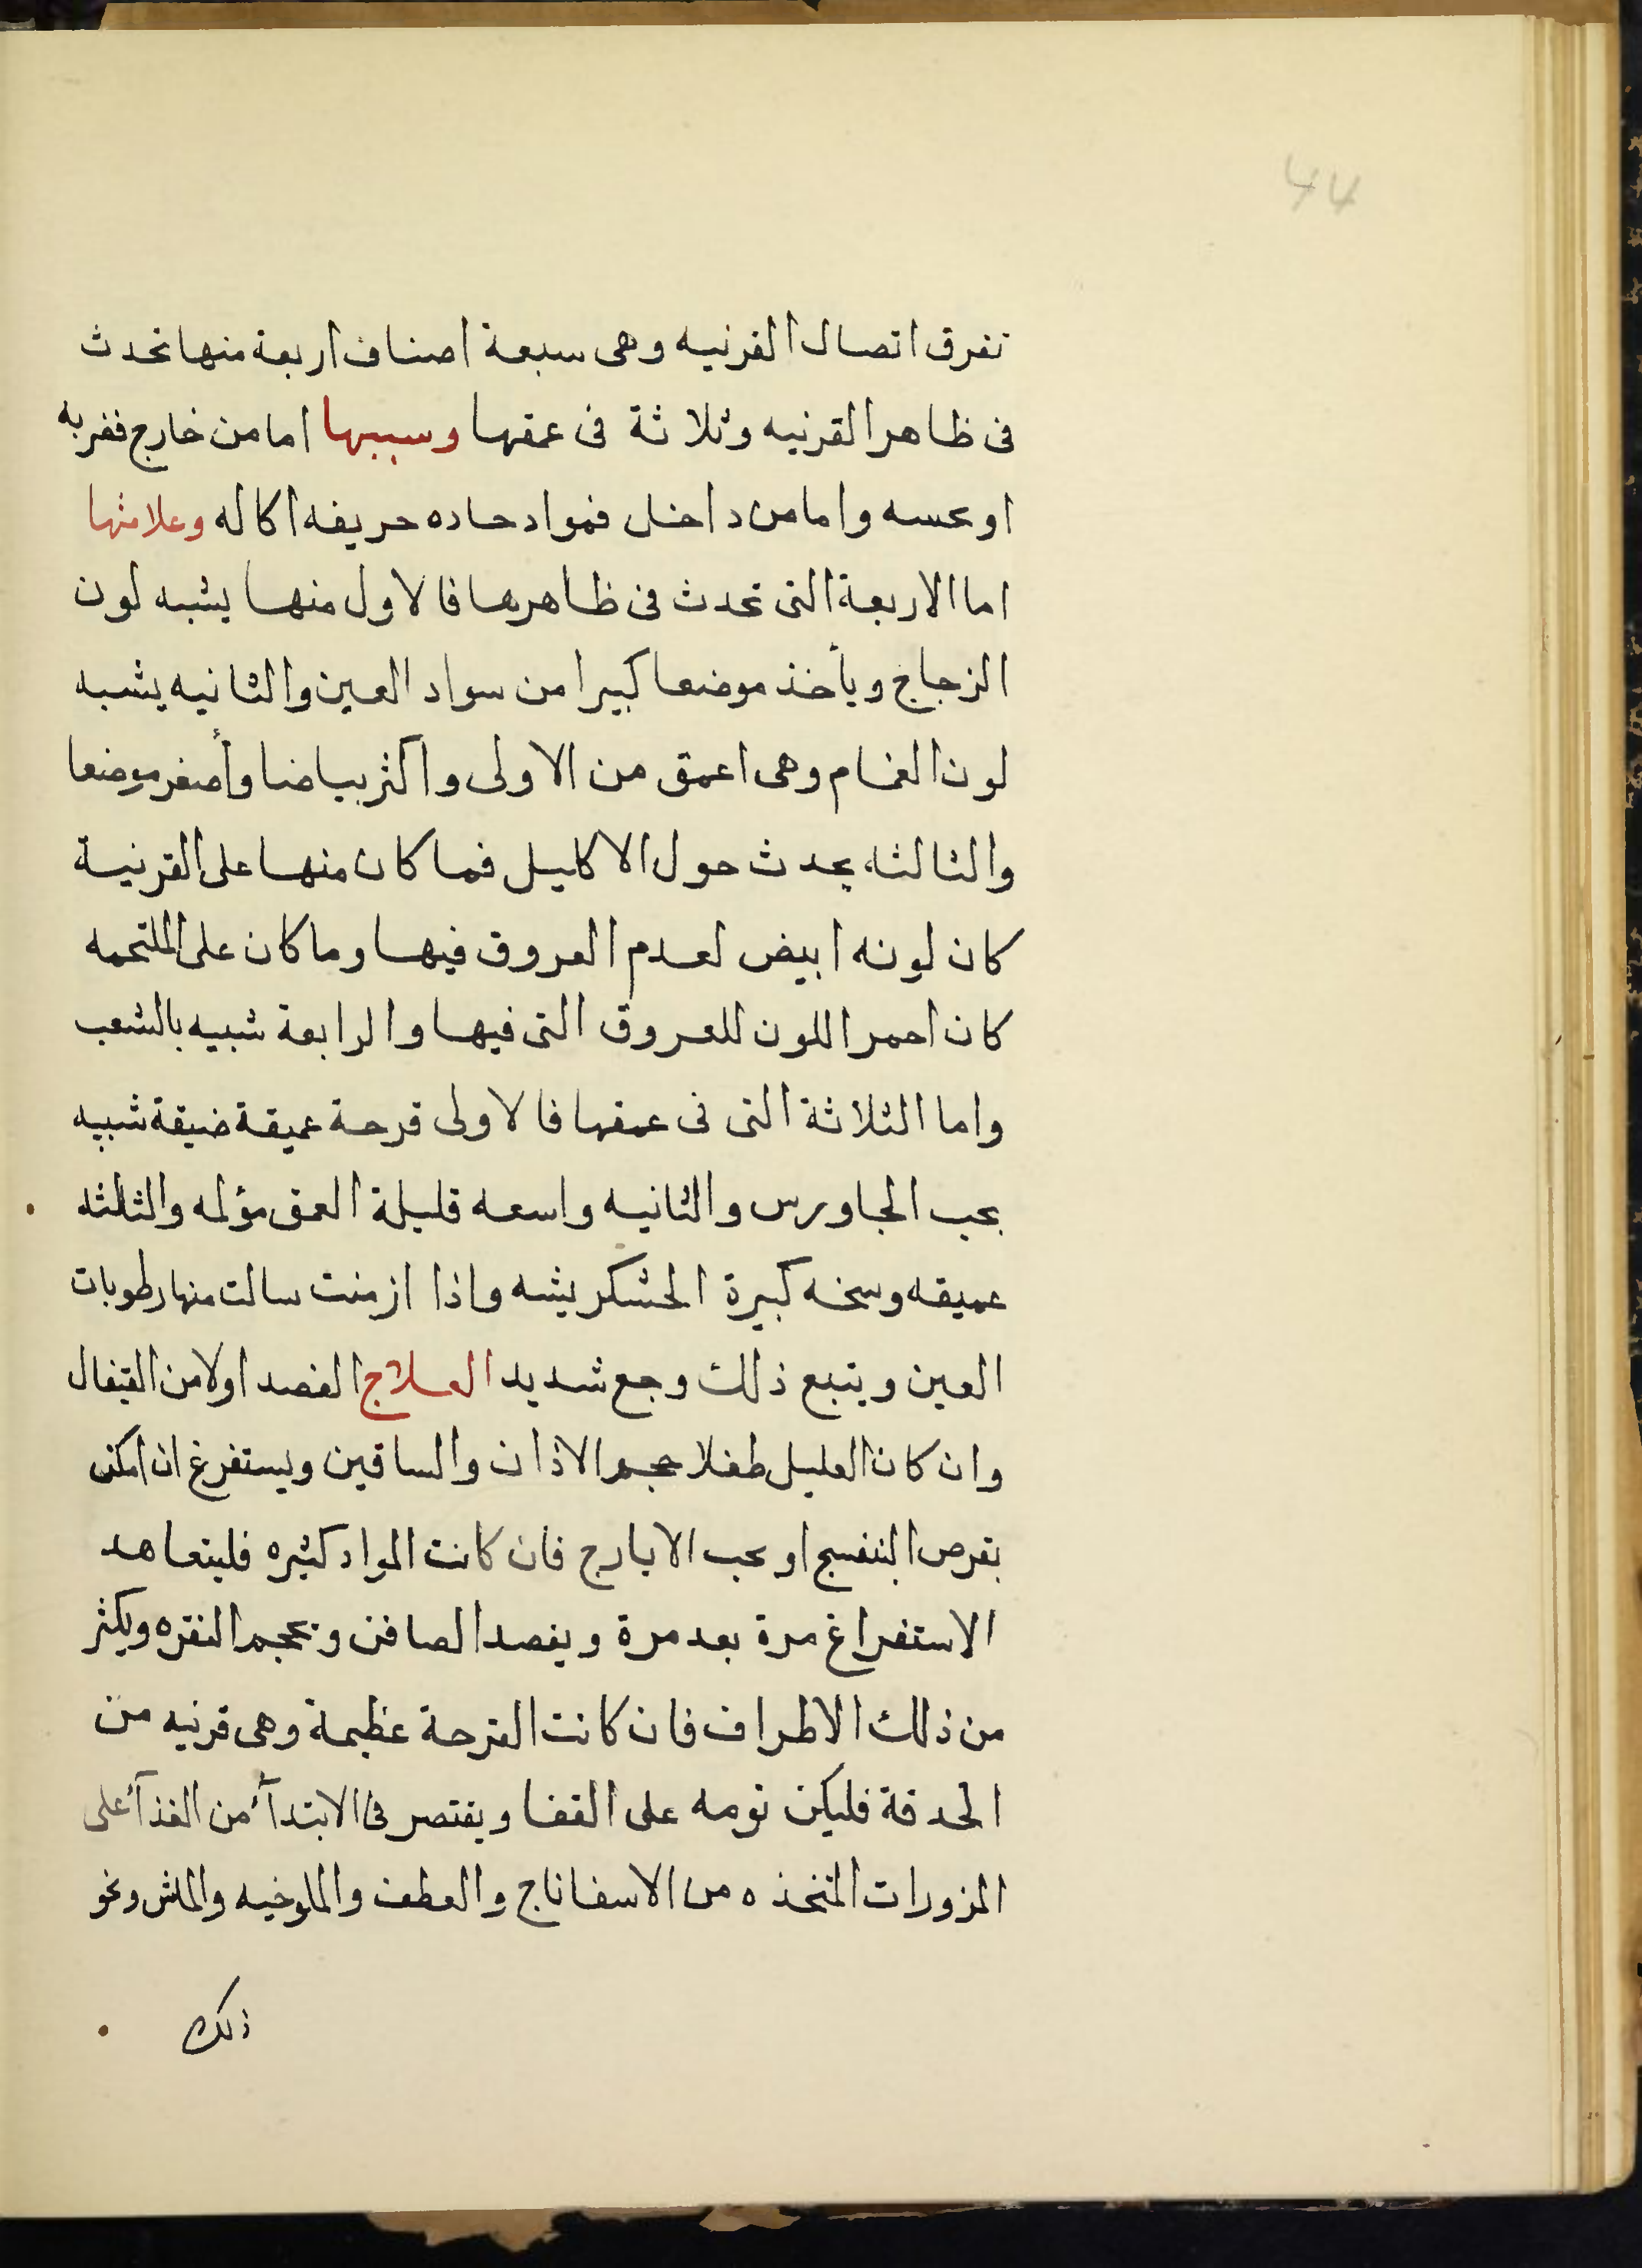 44
تفرق اتصال القرنيه وهى سبعة اصناف اربعة منها تحدث
فى ظاهر القرنيه وثلاثة فى عمقها وسببها اما من خارج فضربه
او واما من داخل فمواد حاده حريفه اكاله وعلامتها
اما الاربعة التى تحدث فى ظاهرها فالاول منها يشبه لون
الزجاج ويأخذ موضعا كبيرا من سواد العين والثانيه يشبه
لون الغمام وهى اعمق من الاولى واكثر بياضا وأصغر موضعا
والثالثه يحدث حول الاكليل فما كان منها على القرنية
كان لونه ابيض لعدم العروق فيها وما كان على الملتحمه
كان احمر اللون للعروق التى فيها والرابعة شبيه بالشعب
واما الثلاثة التى فى عمقها فالاولى قرحة عميقة ضيقة شبيه
بحب الجاورس والثانيه واسعه قليلة العمق مؤلمه والثالثه
عميقه وسخه كبيرة الخشكريشه واذا ازمنت سالت منها رطوبات
العين ويتبع ذلك وجع شديد العلاج الفصد اولا من القيفال
وان كان العليل طفلا حجم الاذان والساقين ويستفرغ ان امكن
بقرص البنفسج او بحب الايارج فان كانت المواد كثيره فليتعاهد
الاستفراغ مرة بعد مرة ويفصد الصافن ويحجم النقره ويكثر
من ذلك الاطراف فان كانت القرحة عظيمة وهى قرنيه من
الحدقة فليكن نومه على القفا ويقتصر فى الابتدآء من الغذآء على
المزورات المتخذه من الاسفاناج والقطف والملوخيه والماش ونحو
ذلك